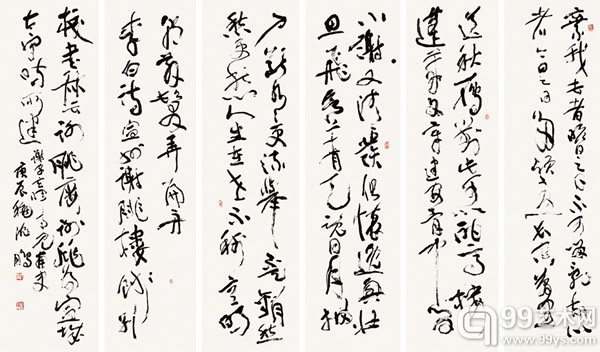 弃我去者昨日之日不可留乱我心
者今日之日多烦忧长风万里
送秋雁对此可以酣高楼
蓬莱文章建安骨中间
小谢又清发俱怀逸兴壮
思飞欲上青天览日月抽
刀断水水更流举杯销愁
愁更愁人生在世不称意明
朝散发弄扁舟
李白诗宣州谢朓楼饯别
校书叔云谢朓楼谢朓为宣城
太守时所建
庚辰
99艺术网
www.99ys.com